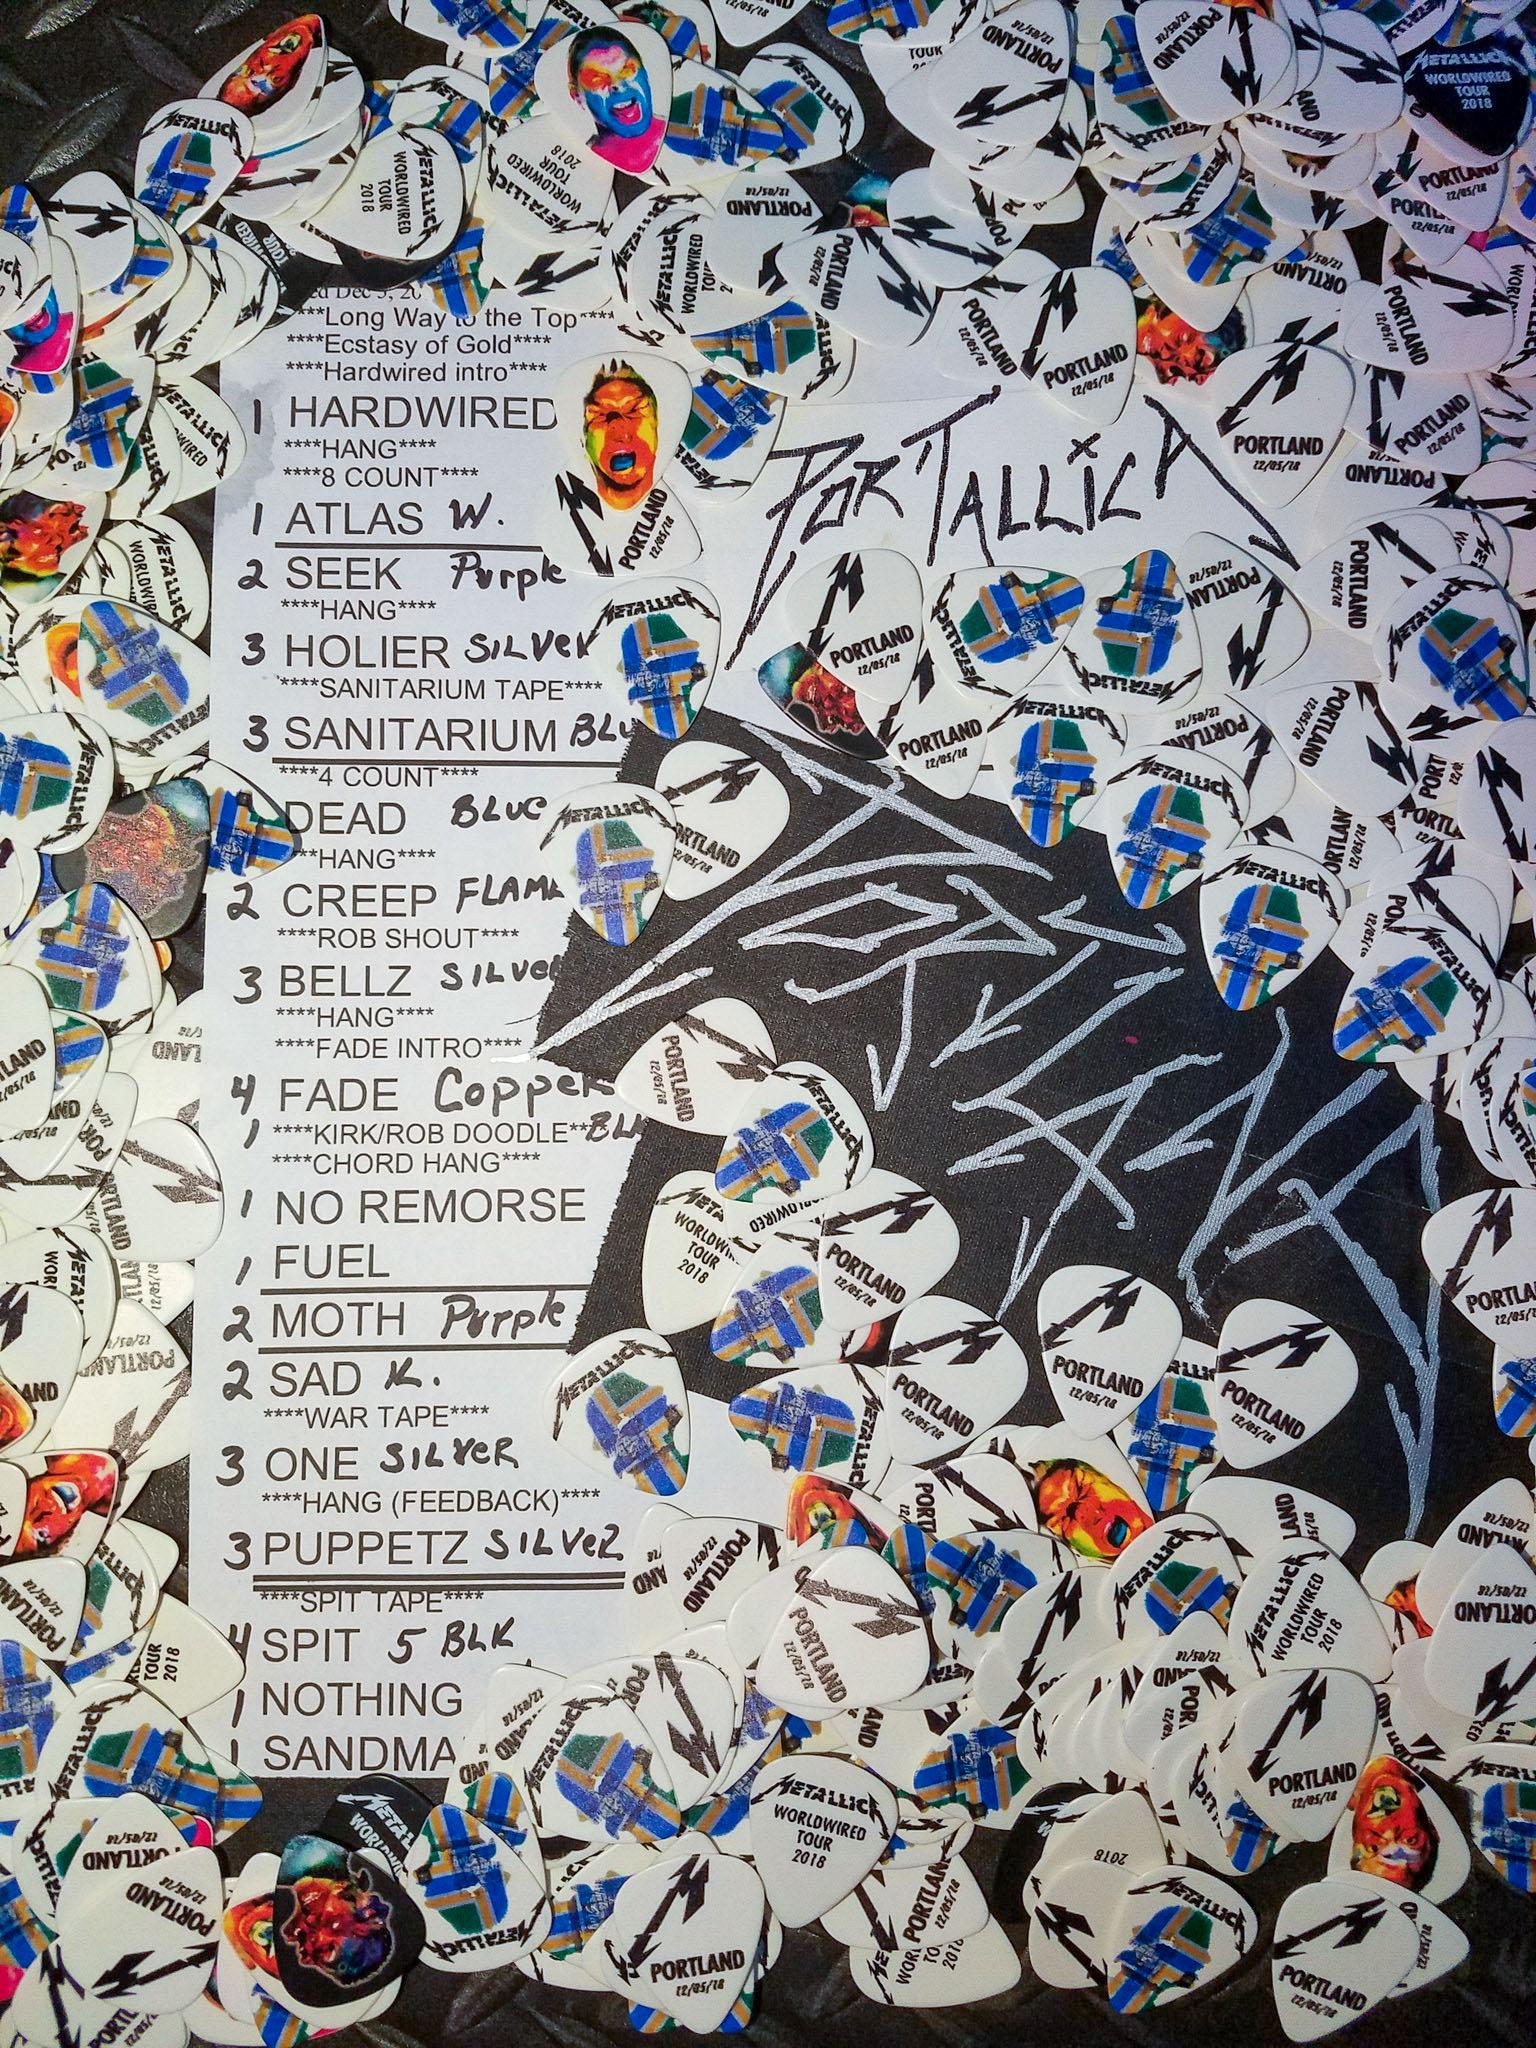 ed Dec 5, 20
****Long Way to the Top****
****Ecstasy of Gold****
****Hardwired intro****
1 HARDWIRED
****HANG****
****8 COUNT****
1 ATLAS W.
2 SEEK Purple
****HANG****
3 HOLIER SILVer
****SANITARIUM TAPE****
3 SANITARIUM BLU
****4 COUNT****
DEAD BLUE
***HANG****
2 CREEP FLAME
****ROB SHOUT****
3 BELLZ SILVer
****HANG****
****FADE INTRO****
4 FADE Copper
1 ****KIRK/ROB DOODLE** BLK
****CHORD HANG****
1 NO REMORSE
1 FUEL
2 MOTH Purple
2 SAD K.
****WAR TAPE****
3 ONE SILVER
****HANG (FEEDBACK)****
3 PUPPETZ SILVER
****SPIT TAPE****
4 SPIT 5 BLK
1 NOTHING
1 SANDMA
PORTALLICA
PORTLAND
METALLICA
WORLDWIRED
TOUR
2018
PORTLAND
12/05/18